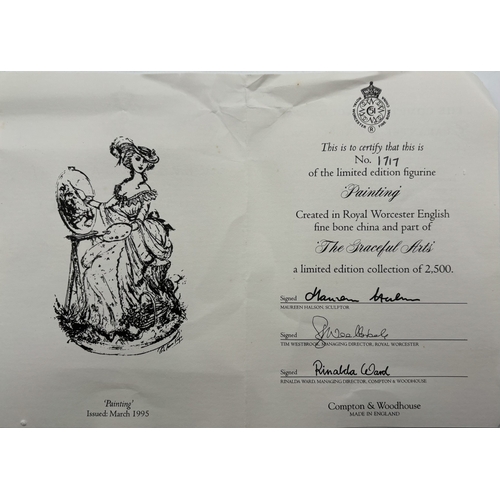 'Painting'
Issued: March 1995
This is to certify that this is
No. 1717
of the limited edition figurine
'Painting'
Created in Royal Worcester English
fine bone china and part of
'The Graceful Arts'
a limited edition collection of 2,500.
Signed
MAUREEN HALSON, SCULPTOR
Signed
TIM WESTBROOK, MANAGING DIRECTOR, ROYAL WORCESTER
Signed Rinalda Ward
RINALDA WARD, MANAGING DIRECTOR, COMPTON & WOODHOUSE
Compton & Woodhouse
MADE IN ENGLAND